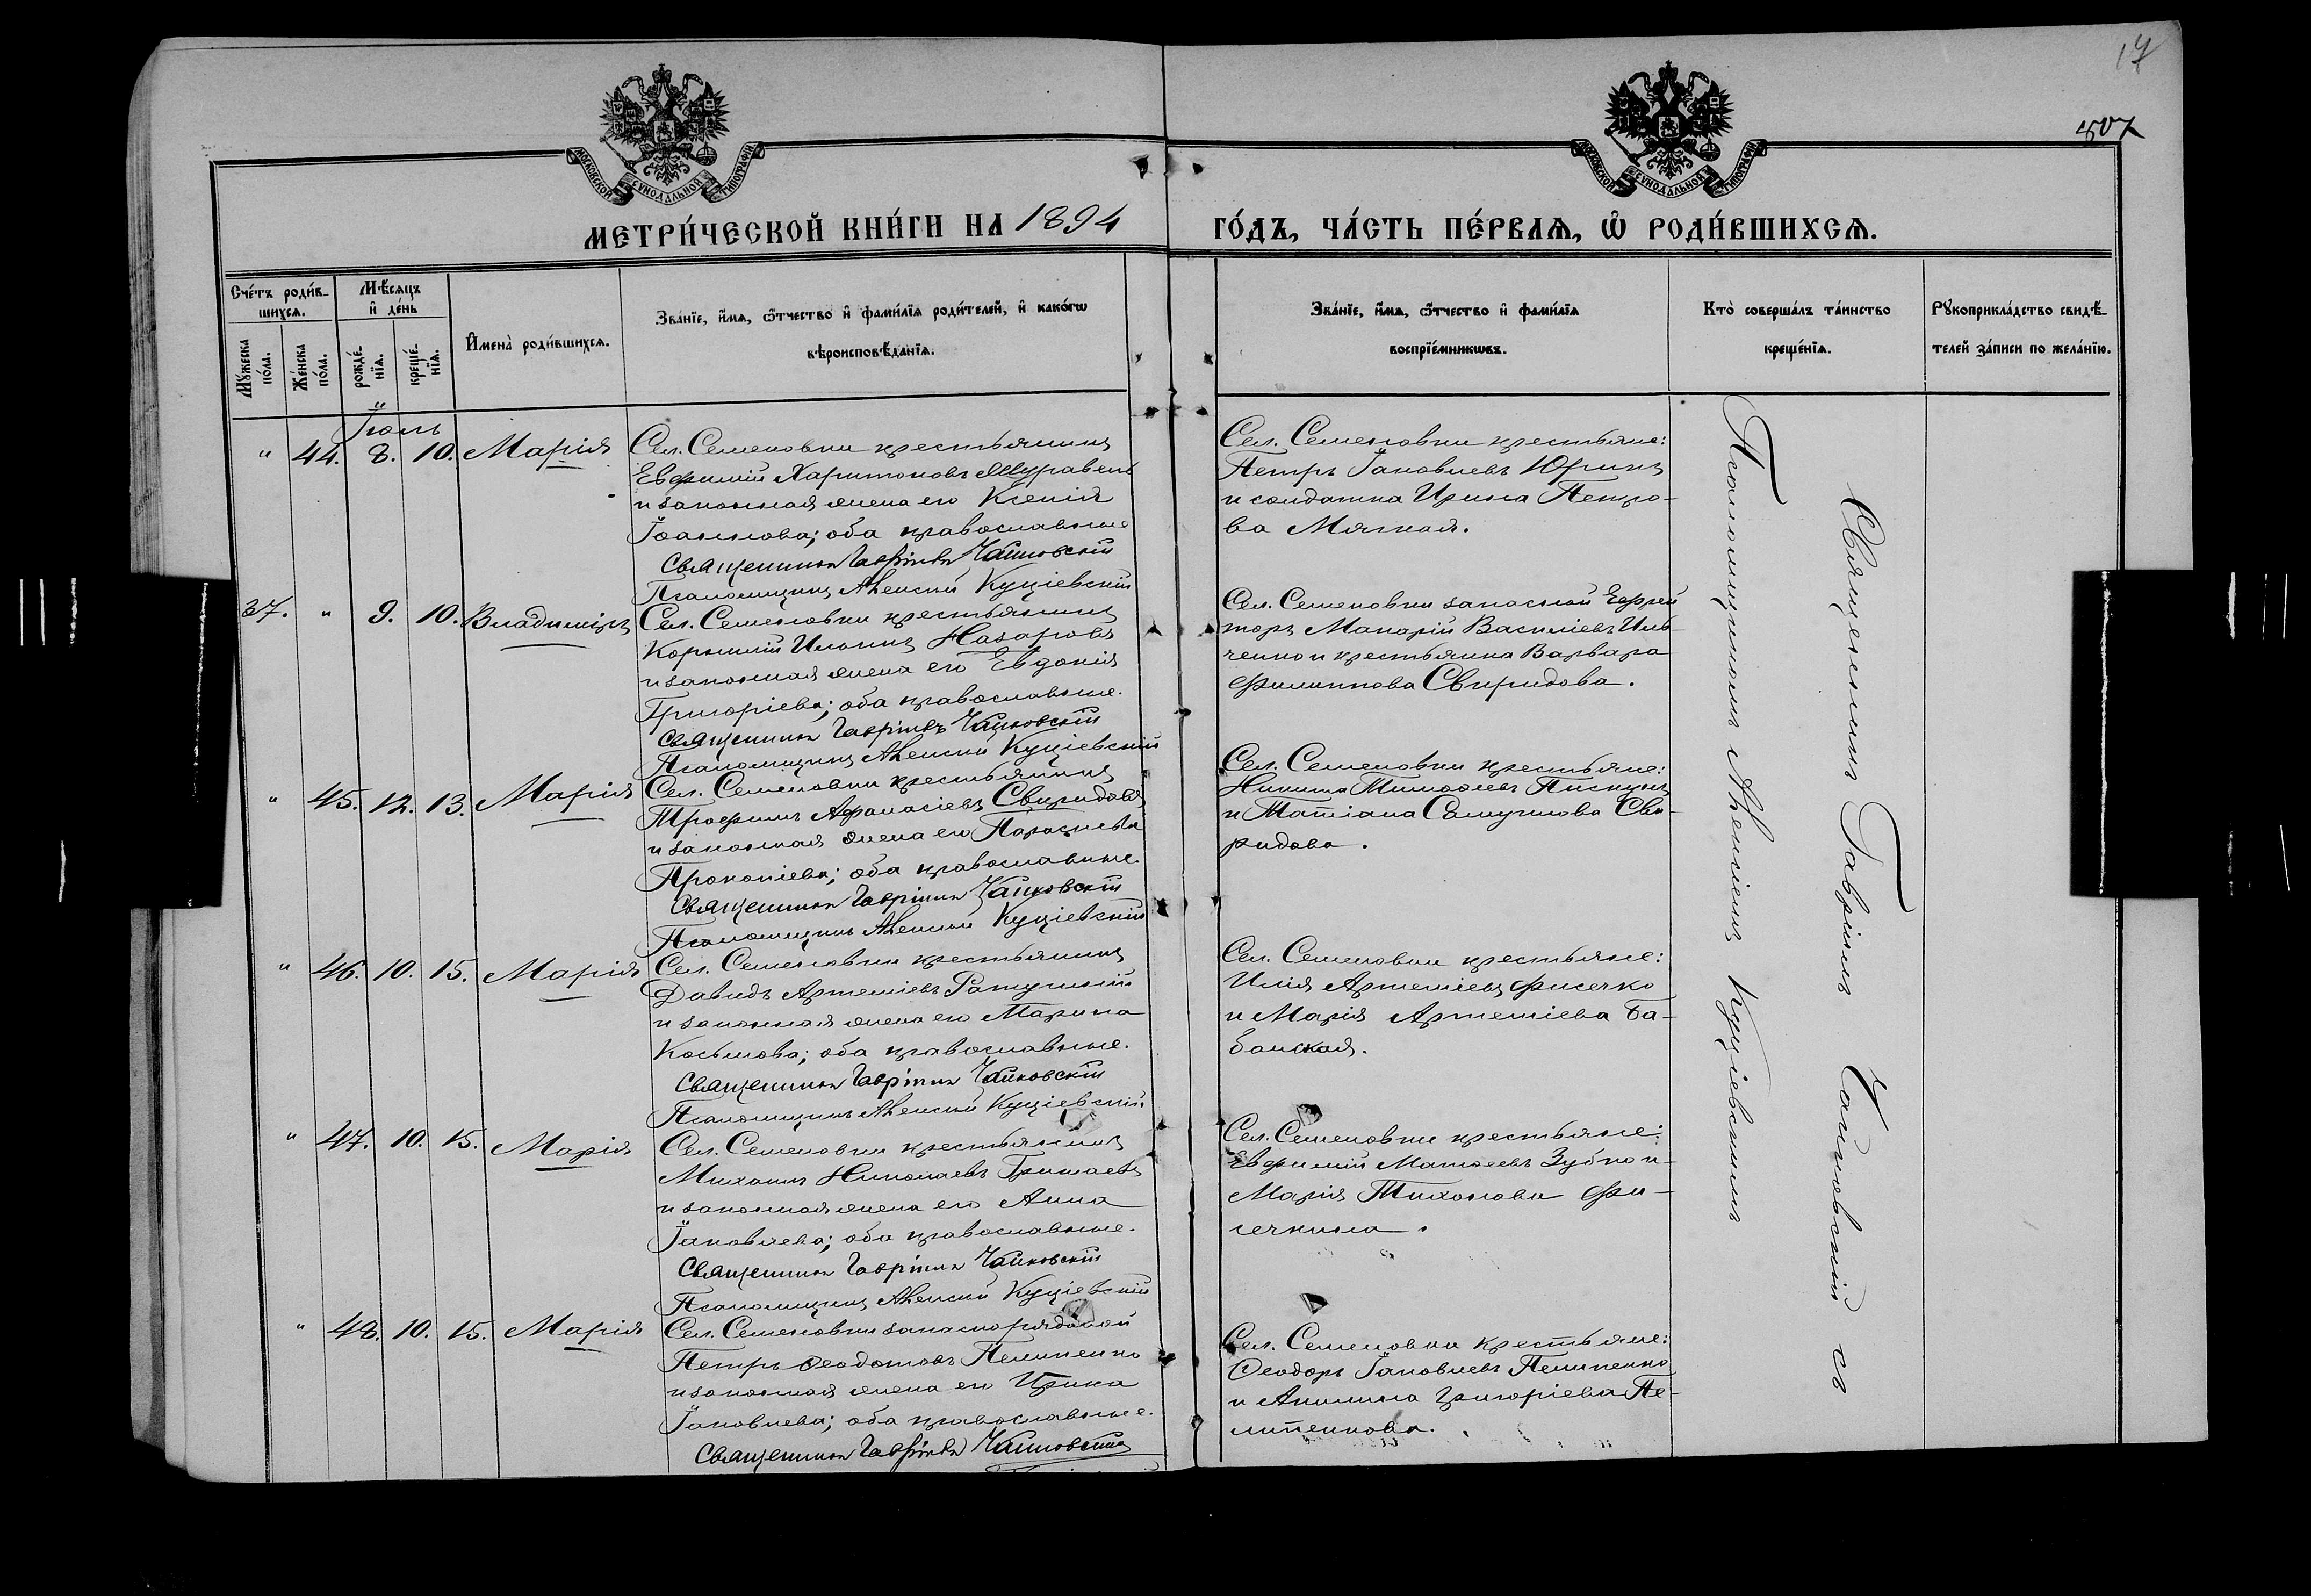 17
507
МОСКОВСКОЙ СѴНОДАЛЬНОЙ ТИПОГРАФІИ
МОСКОВСКОЙ СѴНОДАЛЬНОЙ ТИПОГРАФІИ
МЕТРИ́ЧЕСКОЙ КНИ́ГИ НА 1894
ГО́ДЪ, ЧА́СТЬ ПЕ́РВАѦ, Ѡ҆ РОДИ́ВШИХСѦ.
Сче́тъ роди́в-
шихсѧ.
Мꙋ́жеска по́ла.
Же́нска по́ла.
Мѣ́сѧцъ
и҆ де́нь
рожде́-
нїѧ.
креще́-
нїѧ.
И҆мена̀ роди́вшихсѧ.
Зва́нїе, и҆́мѧ, ѻ҆́тчество и҆ фами́лїѧ роди́телей, и҆ како́гѡ
вѣроисповѣ́данїѧ.
Зва́нїе, и҆́мѧ, ѻ҆́тчество и҆ фами́лїѧ
воспрїе́мникѡвъ.
Кто̀ соверша́лъ та́инство
креще́нїѧ.
Рꙋкоприкла́дство свидѣ́-
телей за́писи по жела́нїю.
Іюль
" 44. 8. 10. Марія
Сел. Семеновки крестьянинъ
Евфимій Харитоновъ Журавель
и законная жена его Ксенія
Іоаннова; оба православные
Священникъ Гавріилъ Чайковскій
Псаломщикъ Алексій Куціевскій
Сел. Семеновки крестьяне:
Петръ Іаковлевъ Юринъ
и солдатка Ирина Петро-
ва Мягкая.
37. " 9. 10. Владиміръ
Сел. Семеновки крестьянинъ
Корнилій Илынъ Назаровъ
и законная жена его Евдокія
Григоріева; оба православные.
Священникъ Гавріилъ Чайковскій
Псаломщикъ Алексій Куціевскій
Сел. Семеновки запасной Ефрей
торъ Макарій Василіевъ Иль
ченко и крестьянка Варвара
Филиппова Свиридова.
" 45. 12. 13. Марія
Сел. Семеновки крестьянинъ
Трофимъ Афанасіевъ Свиридовъ
и законная жена его Параскева
Прокопіева; оба православные.
Священникъ Гавріилъ Чайковскій
Псаломщикъ Алексій Куціевскій
Сел. Семеновки крестьяне:
Никита Тимофеевъ Пискунъ
и Татіана Самуилова Сви-
ридова.
" 46. 10. 15. Марія
Сел. Семеновки крестьянинъ
Давидъ Артеміевъ Ратушный
и законная жена его Марина
Косьмова; оба православные.
Священникъ Гавріилъ Чайковскій
Псаломщикъ Алексій Куціевскій
Сел. Семеновки крестьяне:
Илія Артеміевъ Фисечко
и Марія Артеміева Ба-
банская.
" 47. 10. 15. Марія
Сел. Семеновки крестьянинъ
Михаилъ Николаевъ Гришаевъ
и законная жена его Анна
Іаковлева; оба православные.
Священникъ Гавріилъ Чайковскій
Псаломщикъ Алексій Куціевскій
Сел. Семеновки крестьяне:
Евфимій Матфеевъ Зубко и
Марія Тихонова Фи-
сечкина.
" 48. 10. 15. Марія
Сел. Семеновки запасно рядовой
Петръ Феодотовъ Пелипенко
и законная жена его Ирина
Іаковлева; оба православные.
Священникъ Гавріилъ Чайковскій
Сел. Семеновки крестьяне:
Феодоръ Іаковлевъ Пелипенко
и Акилина Григоріева Пе-
липенкова.
Священникъ Гавріилъ Чайковскій съ
Псаломщикомъ Алексіемъ Куціевскимъ